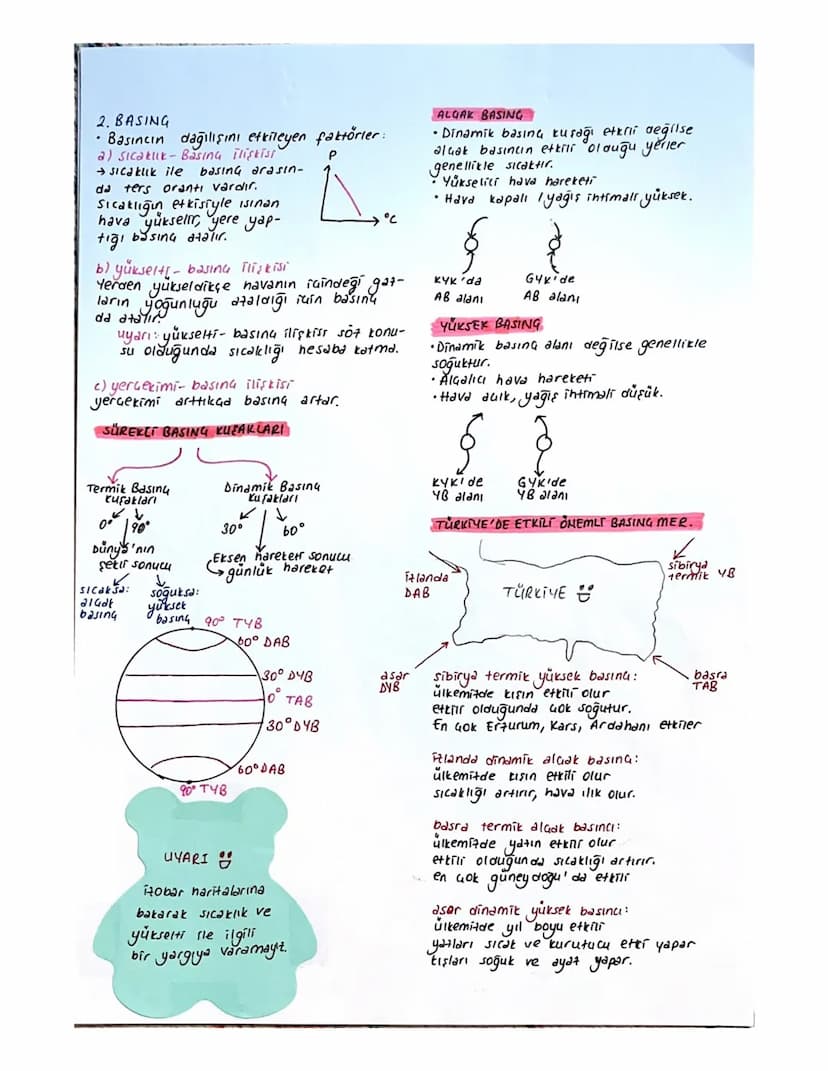 2. BASINÇ
• Basıncın dağılışını etkileyen faktörler:
a) sıcaklık - Basınç ilişkisi
→ sıcaklık ile basınç arasın-
da ters orantı vardır.
Sıcaklığın etkisiyle ısınan
hava yükselir, yere yap-
tığı basınç azalır.
P
°C
b) yükselti - basınç ilişkisi
Yerden yükseldikçe havanın içindeği gaz-
ların yoğunluğu azaldığı için basınç
da azalır.
uyarı: yükselti - basınç ilişkisi söz konu-
su olduğunda sıcaklığı hesaba katma.
c) yerçekimi - basınç ilişkisi
yerçekimi arttıkça basınç artar.
SÜREKLİ BASINÇ KUŞAKLARI
Termik Basınç
kuşakları
0° 90°
Dünya'nın
şekli sonucu
sıcaksa:
alçak
basınç
soğuksa:
yüksek
basınç
Dinamik Basınç
kuşakları
30° 60°
Eksen hareketi sonucu
günlük hareket
90° TYB
60° DAB
30° DYB
0° TAB
30° DYB
60° DAB
90° TYB
UYARI
İzobar haritalarına
bakarak sıcaklık ve
yükselti ile ilgili
bir yargıya varamayız.
ALÇAK BASINÇ
• Dinamik basınç kuşağı etkili değilse
alçak basıncın etkili olduğu yerler
genellikle sıcaktır.
• Yükselici hava hareketi
• Hava kapalı / yağış ihtimali yüksek.
KYK'da
AB alanı
GYK'de
AB alanı
YÜKSEK BASINÇ
• Dinamik basınç alanı değilse genellikle
soğuktur.
• Alçalıcı hava hareketi
• Hava açık, yağış ihtimali düşük.
KYK'de
YB alanı
GYK'de
YB alanı
TÜRKİYE'DE ETKİLİ ÖNEMLİ BASINÇ MER.
İzlanda
DAB
sibirya
termik YB
TÜRKİYE
asor
DYB
basra
TAB
sibirya termik yüksek basınç:
ülkemizde kışın etkili olur
etkili olduğunda çok soğutur.
En çok Erzurum, Kars, Ardahanı etkiler
İzlanda dinamik alçak basınç:
ülkemizde kışın etkili olur
sıcaklığı artırır, hava ılık olur.
basra termik alçak basıncı:
ülkemizde yazın etkili olur
etkili olduğunda sıcaklığı artırır.
en çok güneydoğu'da etkili
asor dinamik yüksek basıncı:
ülkemizde yıl boyu etkili
yazları sıcak ve kurutucu etki yapar
kışları soğuk ve ayaz yapar.